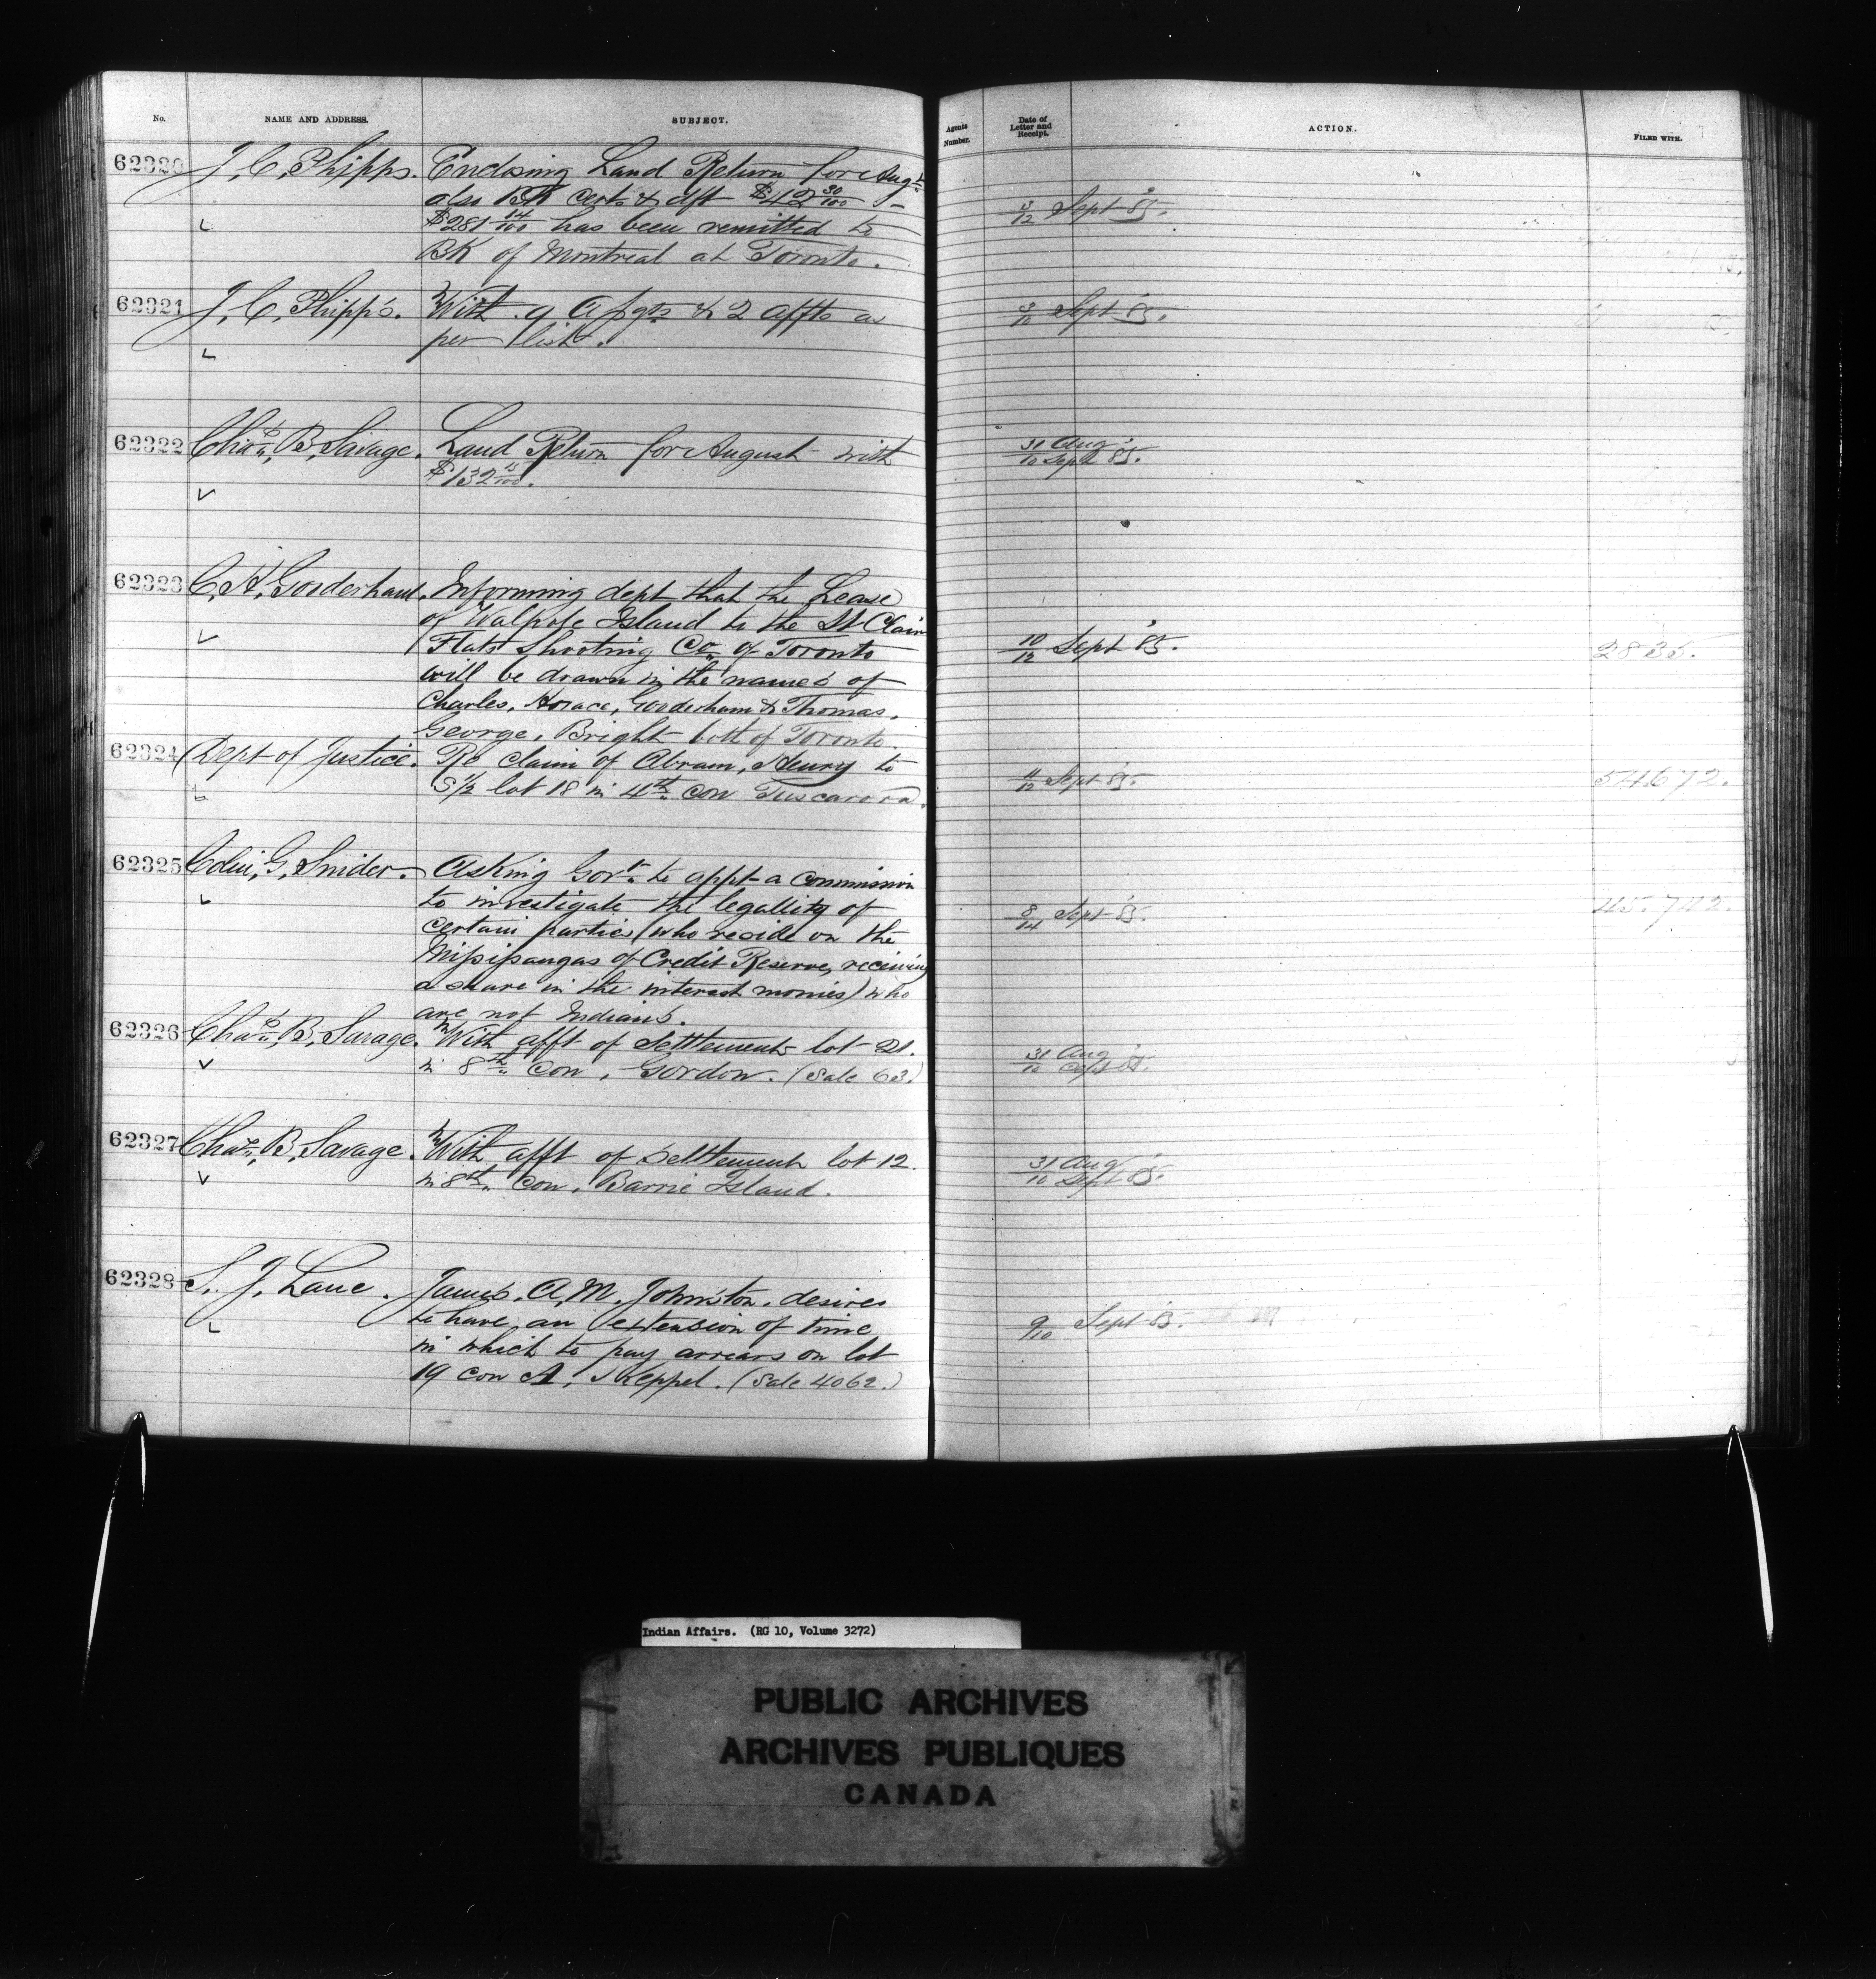 No. NAME AND ADDRESS. SUBJECT. Agents Number. Date of Letter and Receipt. ACTION. FILED WITH.
62320 J. C. Phipps. Enclosing Land Return for Augt
also BK certs & dft $42 30/100
$281 14/100 has been remitted to
BK of Montreal at Toronto.
/12 Sept 85.
62321 J. C. Phipps. With 9 Asgts & 2 affts as
per list.
Sept 85.
62322 Chas. B. Savage. Land Return for August with
$132
31 Aug
10 Sept 85.
62323 C. H. Gooderham. Informing dept that the Lease
of Walpole Island to the St Clair
Flats Shooting Co. of Toronto
will be drawn in the names of
Charles, Horace, Gooderham & Thomas,
George, Bright both of Toronto.
10/12 Sept 85. 2835.
62324 Dept of Justice. Re claim of Abram, Henry to
S 1/2 lot 18 in 4th con Tuscarora.
11/12 Sept 85. 54672.
62325 Colin, G, Snider. Asking Govt. to appt a commission
to investigate the legallity of
certain parties (who reside on the
Missisaugas of Credit Reserve, receiving
a share in the interest monies) who
are not Indians.
8/14 Sept 85. 45.742.
62326 Chas. B. Savage. With afft of Settlement lot 21.
in 8th con, Gordon. (Sale 63.)
31 Aug
10 Sept 85.
62327 Chas. B. Savage. With afft of Settlement lot 12.
in 8th con, Barrie Island.
31 Aug
10 Sept 85.
62328 S. J. Lane. James. A. M. Johnston. desires
to have an extension of time
in which to pay arrears on lot
19 con A, Keppel. (Sale 4062.)
9/10 Sept 85.
Indian Affairs. (RG 10, Volume 3272)
PUBLIC ARCHIVES
ARCHIVES PUBLIQUES
CANADA